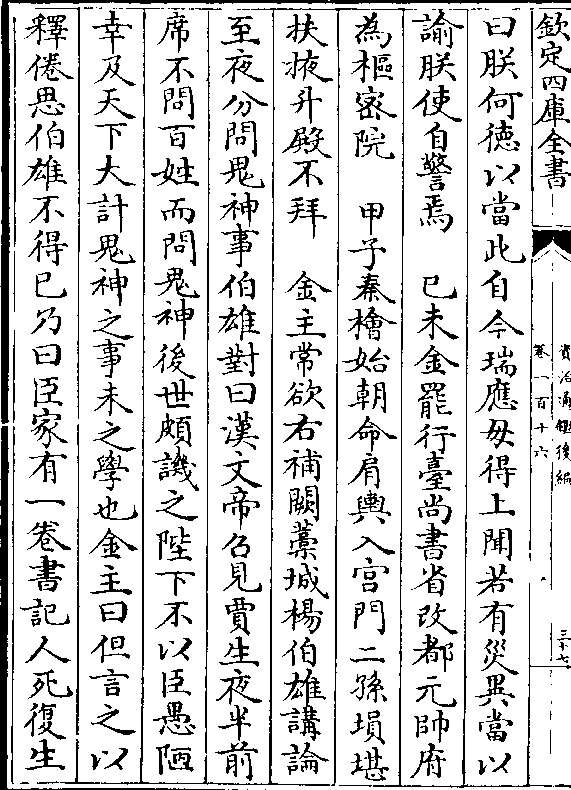 欽定四庫全書
資治通鑑後編
卷一百十六
三十七
曰朕何徳以當此自今瑞應毋得上聞若有災異當以
諭朕使自警焉　己未金罷行臺尚書省改都元帥府
為樞宻院　甲子秦檜始朝命肩輿入宫門二孫塤堪
扶掖升殿不拜　金主常欲右補闕藁城楊伯雄講論
至夜分問鬼神事伯雄對曰漢文帝召見賈生夜半前
席不問百姓而問鬼神後世頗譏之陛下不以臣愚陋
幸及天下大計鬼神之事未之學也金主曰但言之以
釋倦思伯雄不得已乃曰臣家有一卷書記人死復生